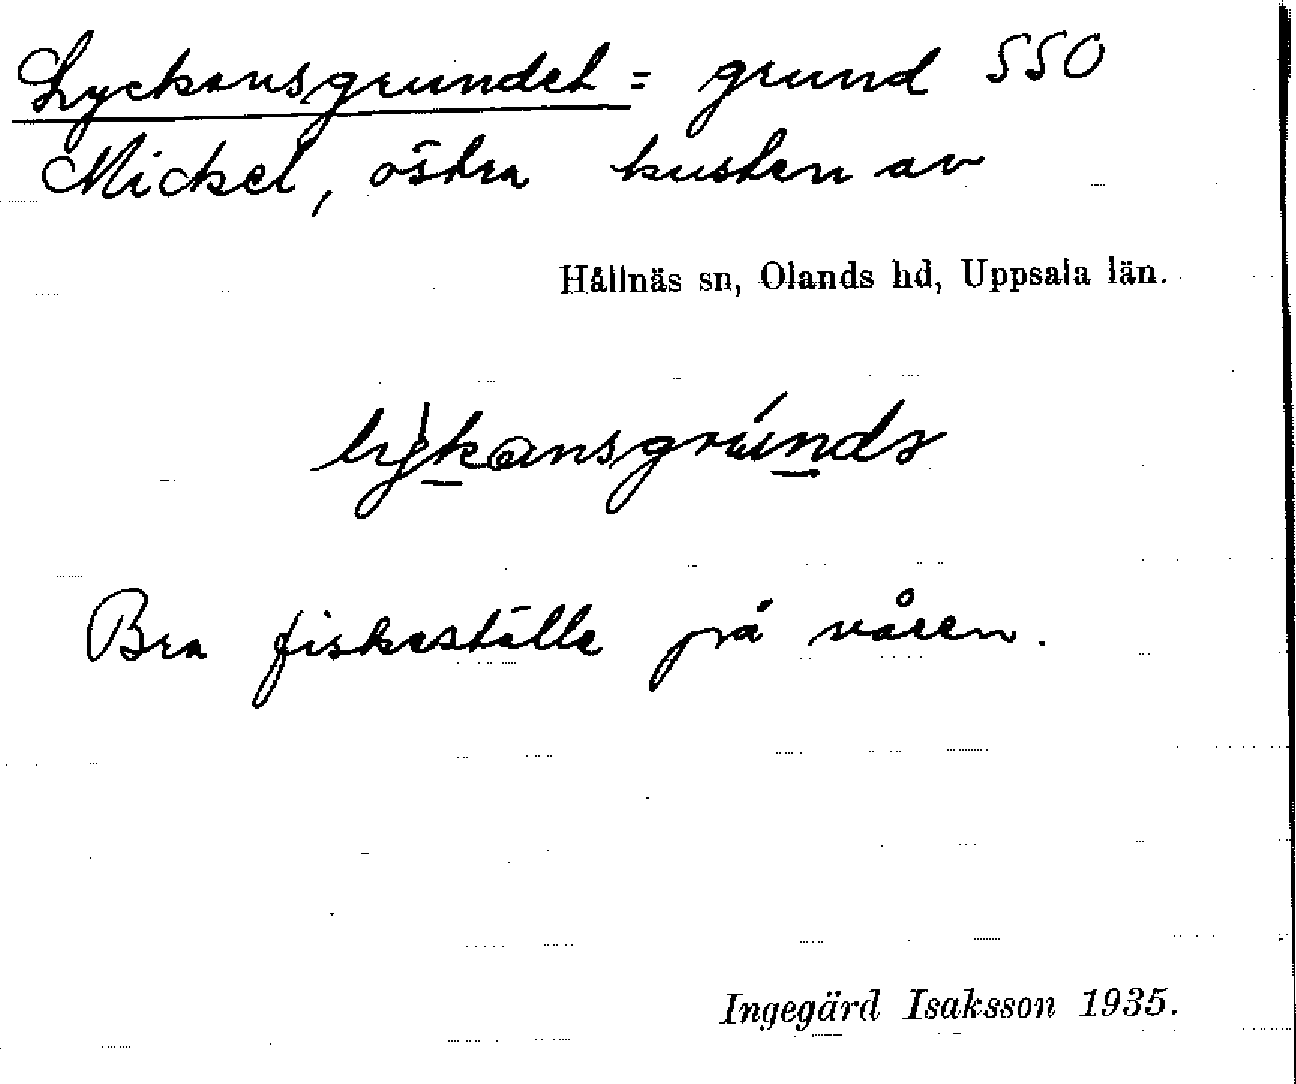 Lyckansgrundet = grund SSO
Mickel, östra kusten av
Hållnäs sn, Olands hd, Uppsala län.
Bra fiskeställe på våren.
Ingegärd Isaksson 1935.